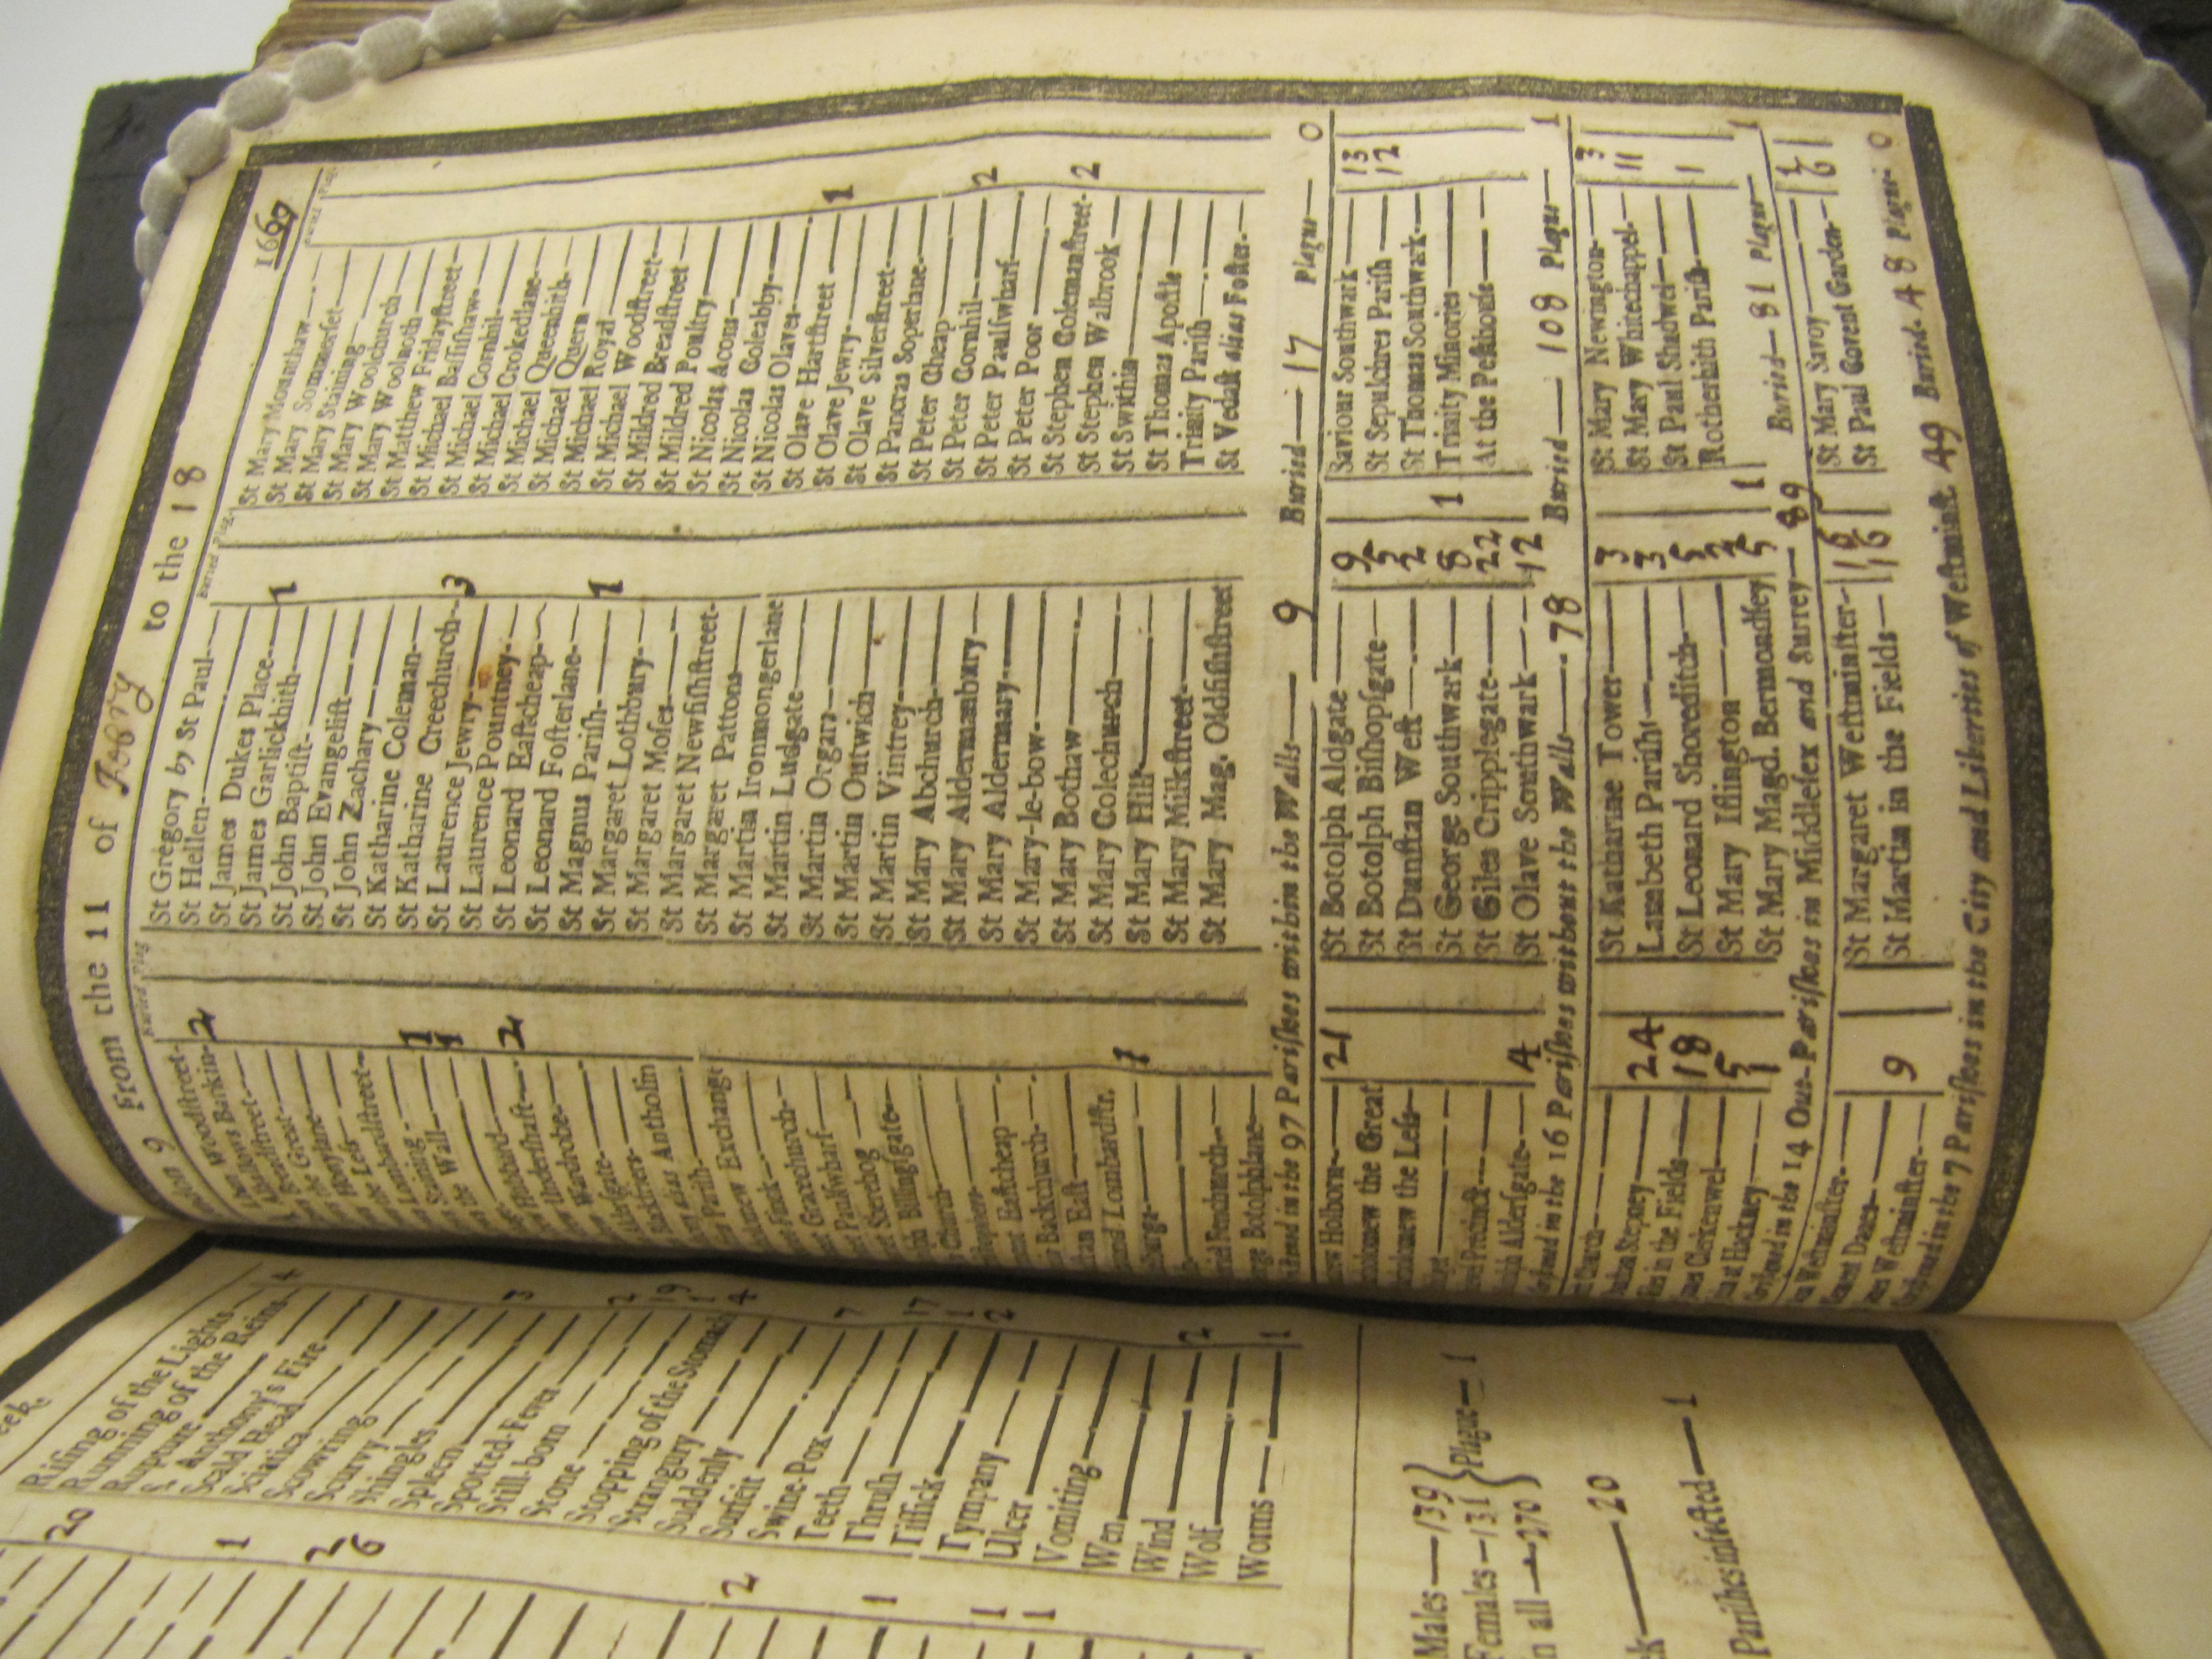 9 From the 11 of Febry to the 18 1669
Buried Plag
Woodstreet- 2
Barkin-
Breadstreet
the Great
Honylane
the Less
Lombardstreet
Staining - 1
the Wall 1
Hubbard 2
Undershaft
Wardrobe
Aldersgate
Blackfryers
alias Antholin
Parish
Exchange
Fink
Gracechurch
Paulswharf
Sherehog
Billingsgate
Church
Eastcheap
Backchurch
East
Lombardstr.
1
Fenchurch
Botolphlane
Buried Plag.
St Gregory by St Paul
St Hellen
St James Dukes Place
St James Garlickhith 1
St John Baptist
St John Evangelist
St John Zachary
St Katharine Coleman
St Katharine Creechurch
St Laurence Jewry 3
St Laurence Pountney
St Leonard Eastcheap
St Leonard Fosterlane
St Magnus Parish
St Margaret Lothbury 1
St Margaret Moses
St Margaret Newfishstreet
St Margaret Pattons
St Martin Ironmongerlane
St Martin Ludgate
St Martin Orgars
St Martin Outwich
St Martin Vintrey
St Mary Abchurch
St Mary Aldermanbury
St Mary Aldermary
St Mary-le-bow
St Mary Bothaw
St Mary Colechurch
St Mary Hill
St Mary Milkstreet
St Mary Mag. Oldfishstreet
St Mary Mounthaw
St Mary Sommerset
St Mary Staining
St Mary Woolchurch
St Mary Woolnoth
St Matthew Fridaystreet
St Michael Bassishaw
St Michael Cornhil
St Michael Crokedlane
St Michael Queenhith
St Michael Quern
St Michael Royal
St Michael Woodstreet
St Mildred Breadstreet
St Mildred Poultry
St Nicolas Acons
St Nicolas Coleabby
St Nicolas Olaves
St Olave Hartstreet
St Olave Jewry 1
St Olave Silverstreet
St Pancras Soperlane
St Peter Cheap
St Peter Cornhil
St Peter Paulswharf 2
St Peter Poor
St Stephen Colemanstreet
St Stephen Walbrook 2
St Swithin
St Thomas Apostle
Trinity Parish
St Vedast alias Foster
in the 97 Parishes within the Walls 9 Buried 17 Plague 0
Holborn 21
the Great
the Less
Precinct
Aldersgate 4
St Botolph Aldgate 9
St Botolph Bishopsgate 5
St Dunstan West 2
St George Southwark 8 1
St Giles Cripplegate 22
St Olave Southwark 12
Saviour Southwark 13
St Sepulchres Parish 12
St Thomas Southwark
Trinity Minories
At the Pesthouse
in the 16 Parishes without the Walls 78 Buried 108 Plague 1
Church
Stepney 24
in the Fields 18
Clerkenwel 5
at Hackney 1
St Katharine Tower 3
Lambeth Parish 3
St Leonard Shoreditch 5
St Mary Islington 2
St Mary Magd. Bermondsey 5 1
St Mary Newington 3
St Mary Whitechappel 11
St Paul Shadwel
Rotherhith Parish 1
in the 14 Out-Parishes in Middlesex and Surrey 89 Buried 81 Plague 1
Westminster
Danes 9
Westminster
St Margaret Westminster 16
St Martin in the Fields 16
St Mary Savoy
St Paul Covent Garden 6
in the 7 Parishes in the City and Liberties of Westminst. 49 Buried 48 Plague 0
20
1
2
6
2
1
1
1
Rising of the Lights 4
Running of the Reins
Rupture
S. Anthony's Fire
Scald Head
Sciatica
Scowring
Scurvy
Shingles
Spleen
Spotted-Fever 3
Still-born
Stone 2
Stopping of the Stomach 19
Strangury 1
Suddenly 4
Surfeit
Swine-Pox
Teeth 7
Thrush
Tissick 17
Tympany 1
Ulcer 2
Vomiting
Wen
Wind
Wolf 2
Worms 1
Males 139
Females 131
in all 270
Plague 1
20
Parishes infected 1